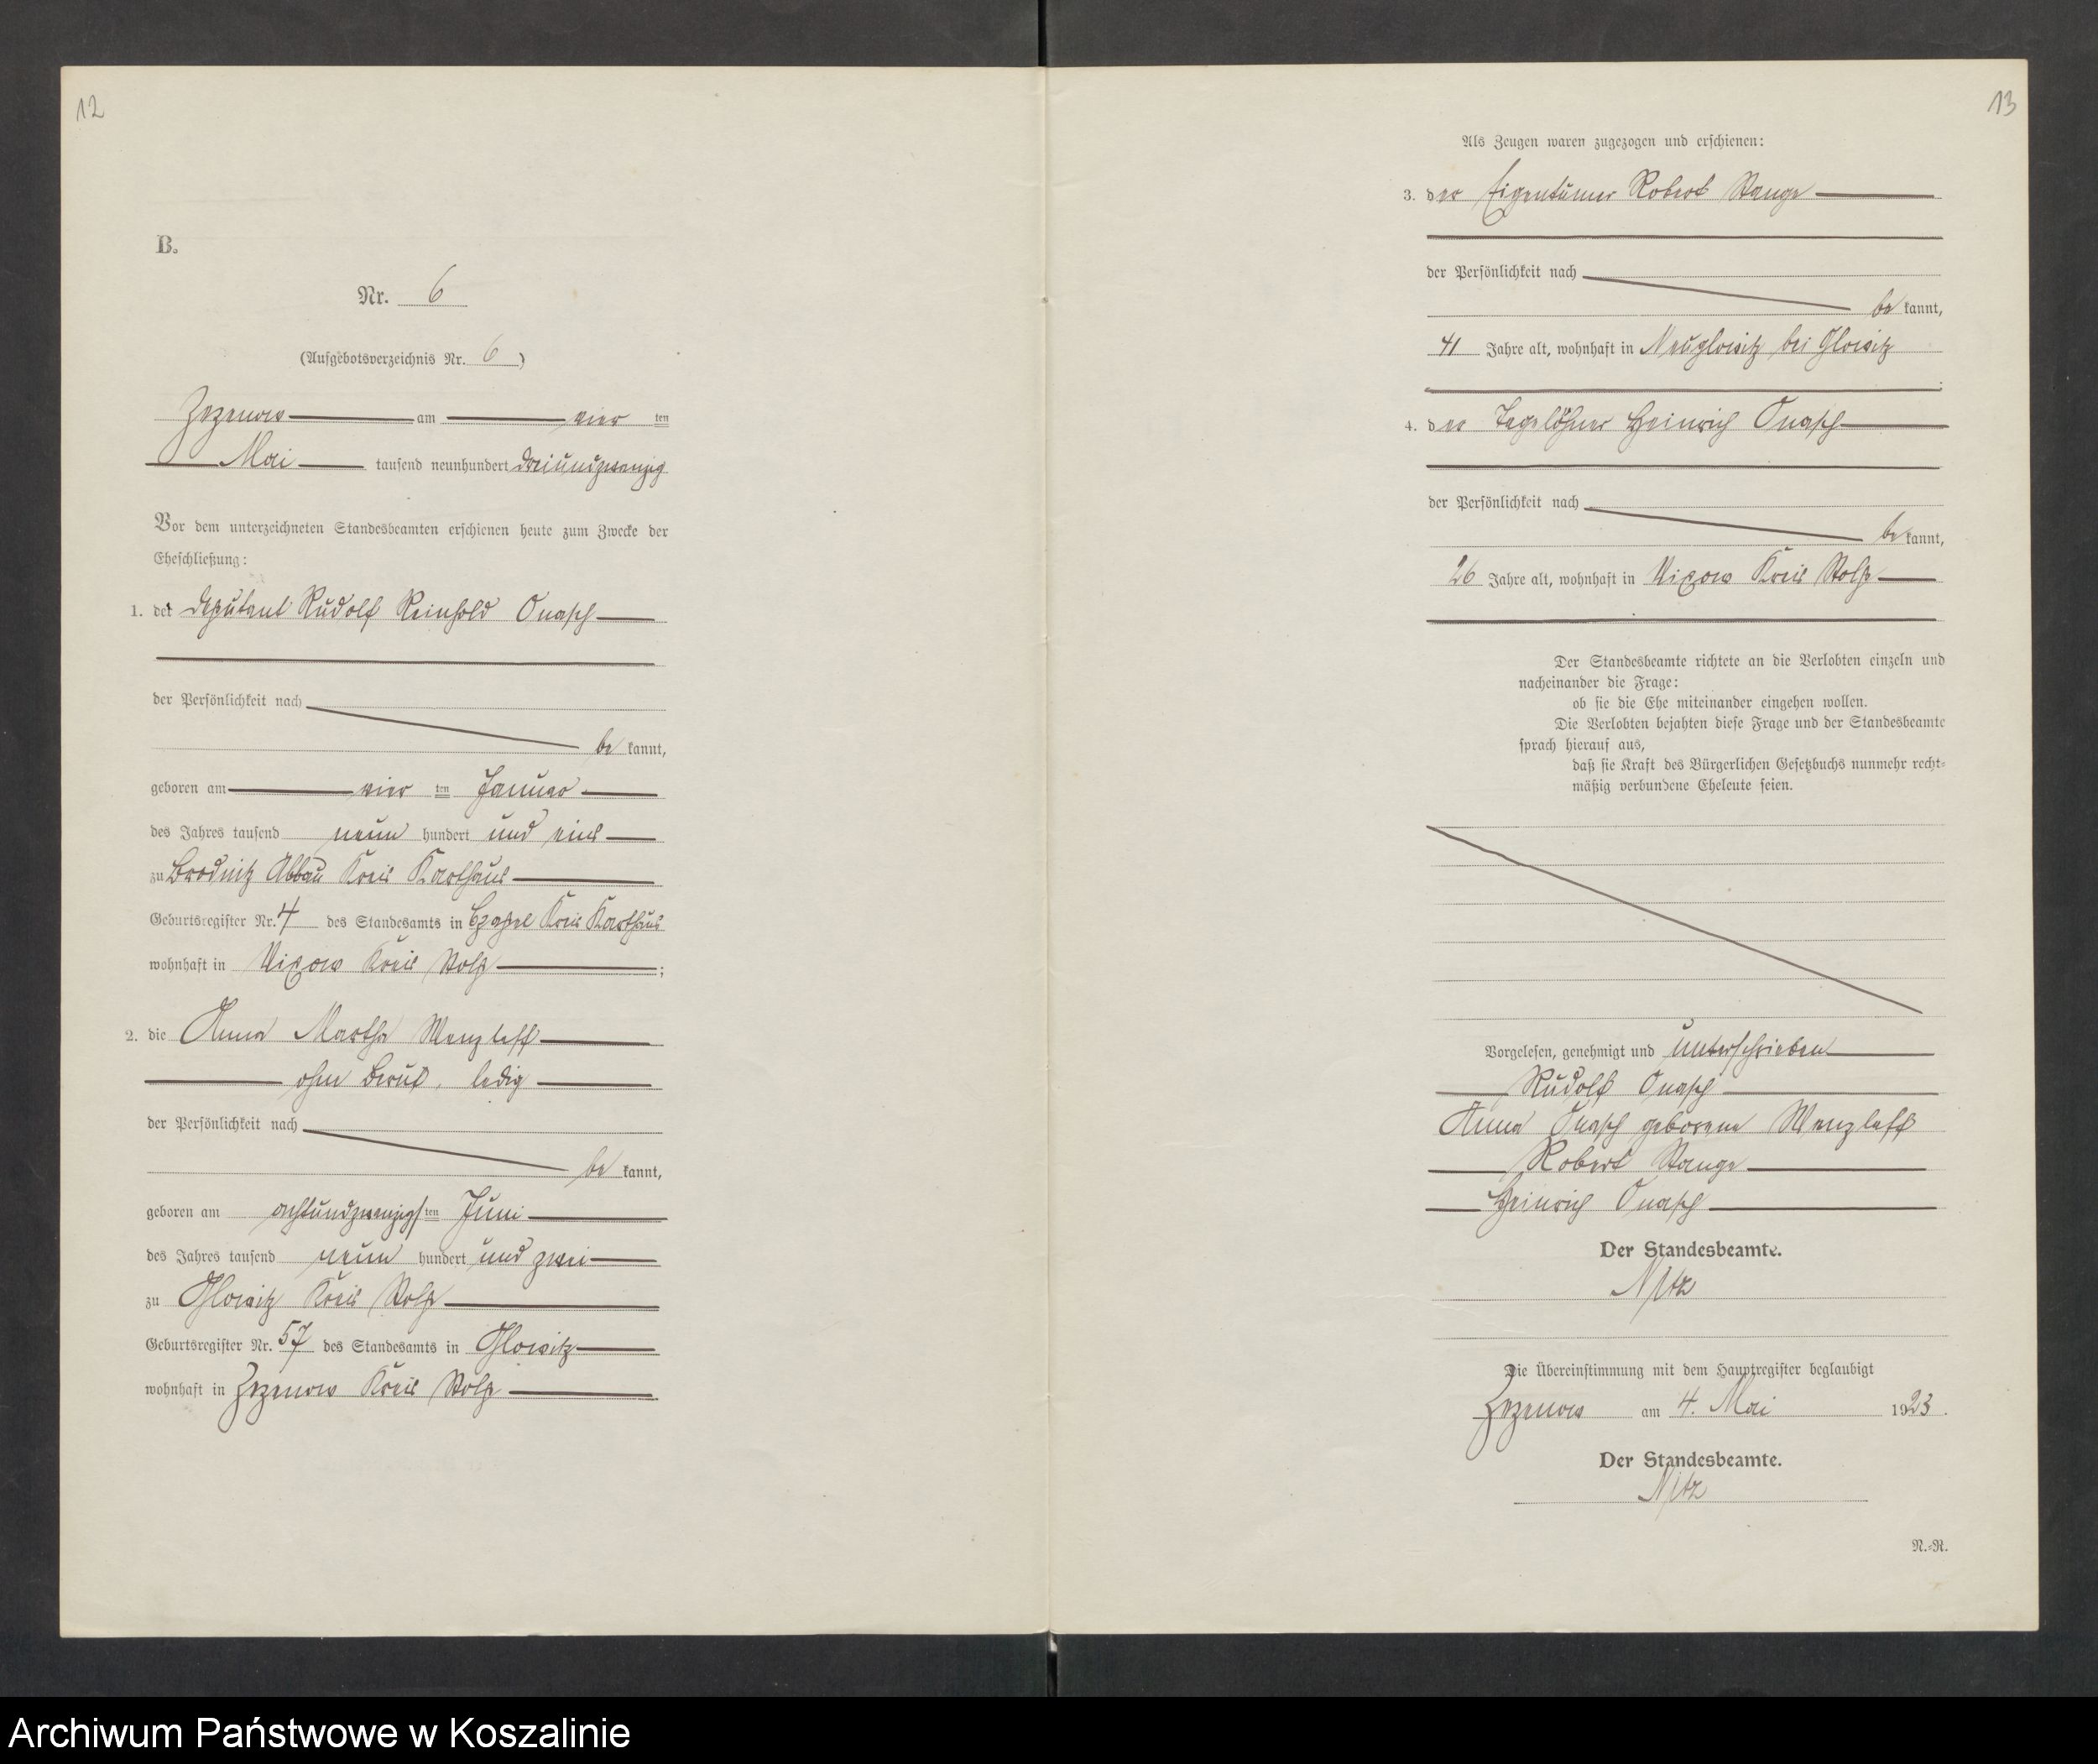 12
B.
Nr. 6
(Aufgebotsverzeichnis Nr. 6)
Zezenow am vier ten
Mai tausend neunhundert dreiundzwanzig
Vor dem unterzeichneten Standesbeamten erschienen heute zum Zwecke der
Eheschließung:
1. der Deputant Rudolf Reinhold Onasch
der Persönlichkeit nach
be kannt,
geboren am vier ten Januar
des Jahres tausend neun hundert und eins
zu Brodnitz Abbau Kreis Karthaus
Geburtsregister Nr. 4 des Standesamts in Czapel Kreis Karthaus
wohnhaft in Vixow Kreis Stolp ;
2. die Anna Martha Wenzlaff
ohne Beruf, ledig
der Persönlichkeit nach
be kannt,
geboren am achtundzwanzigs ten Juni
des Jahres tausend neun hundert und zwei
zu Glowitz Kreis Stolp
Geburtsregister Nr. 57 des Standesamts in Glowitz
wohnhaft in Zezenow Kreis Stolp
13
Als Zeugen waren zugezogen und erschienen:
3. der Eigentümer Robert Stange
der Persönlichkeit nach
be kannt,
41 Jahre alt, wohnhaft in Neuglowitz bei Glowitz
4. der Tagelöhner Heinrich Onasch
der Persönlichkeit nach
be kannt,
26 Jahre alt, wohnhaft in Vixow Kreis Stolp
Der Standesbeamte richtete an die Verlobten einzeln und
nacheinander die Frage:
ob sie die Ehe miteinander eingehen wollen.
Die Verlobten bejahten diese Frage und der Standesbeamte
sprach hierauf aus,
daß sie Kraft des Bürgerlichen Gesetzbuchs nunmehr recht-
mäßig verbundene Eheleute seien.
Vorgelesen, genehmigt und unterschrieben
Rudolf Onasch
Anna Onasch geborene Wenzlaff
Robert Stange
Heinrich Onasch
Der Standesbeamte.
Die Übereinstimmung mit dem Hauptregister beglaubigt
Zezenow am 4. Mai 1923.
Der Standesbeamte.
N.-R.
Archiwum Państwowe w Koszalinie